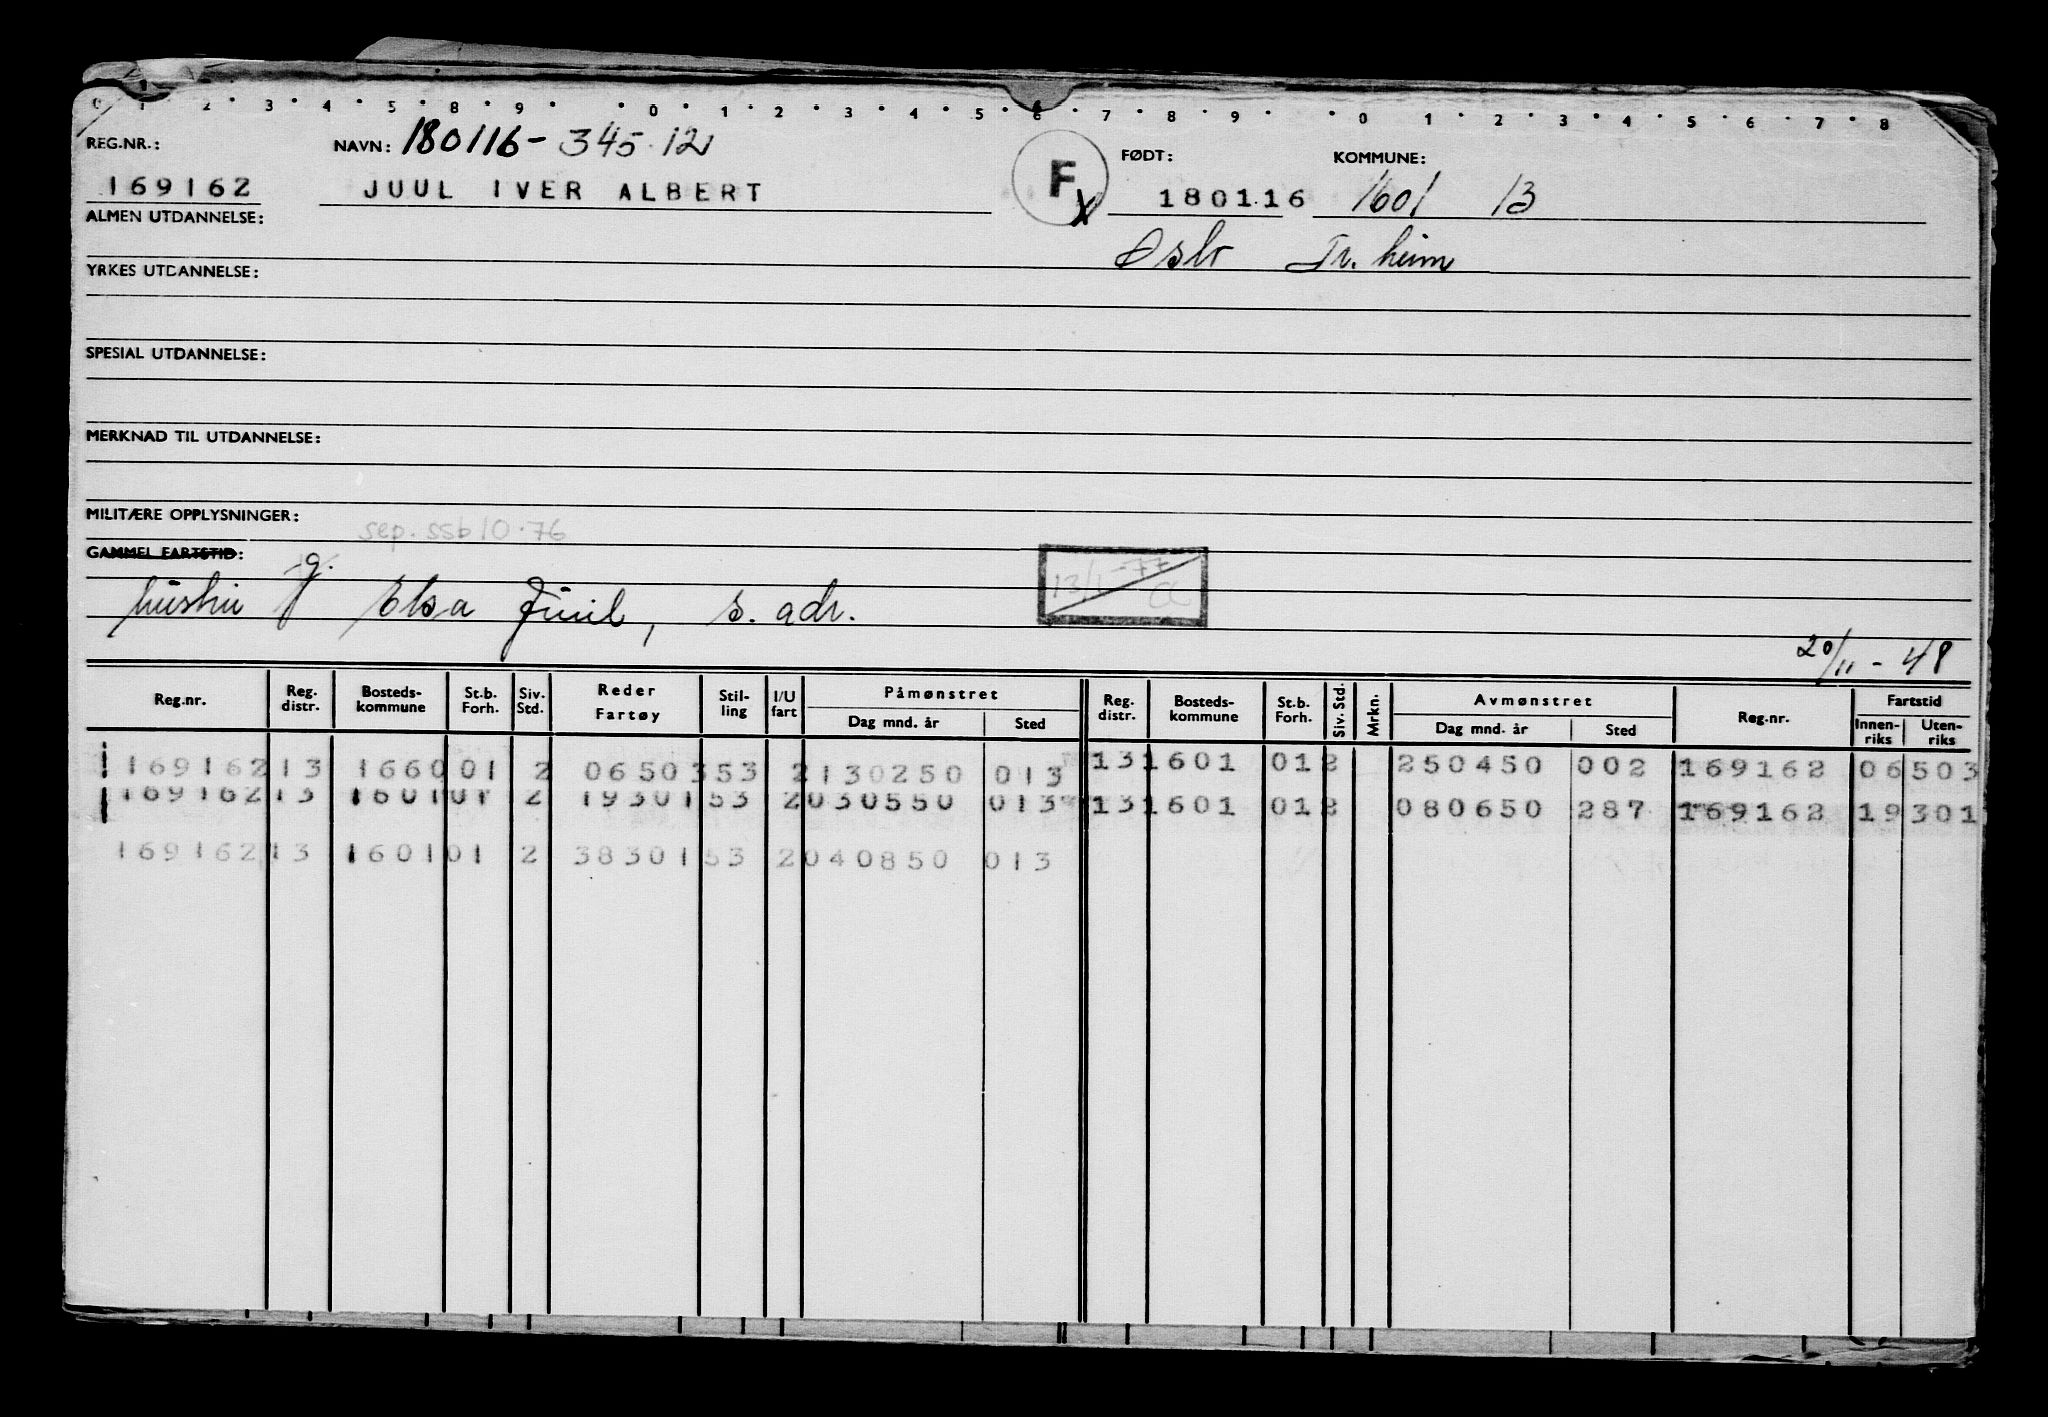 0 1 2 3 4 5 8 9 0 1 2 3 4 5 6 7 8 9 0 1 2 3 4 5 6 7 8
REG.NR.: NAVN: 180116-345.12 FØDT: KOMMUNE:
169162 JUUL IVER ALBERT F x 180116 1601 13
ALMEN UTDANNELSE: Oslo Tr.heim
YRKES UTDANNELSE:
SPESIAL UTDANNELSE:
MERKNAD TIL UTDANNELSE:
MILITÆRE OPPLYSNINGER:
sep. ssb 10.76
GAMMEL FARTSTID: g.
hustru Elsa Juul, s. adr. 13/1-77
20/11-48
Reg.nr. Reg. distr. Bosteds-kommune St.b. Forh. Siv. Std. Reder Fartøy Stil-ling I/U fart Påmønstret Dag mnd. år Sted Reg. distr. Bosteds-kommune St.b. Forh. Siv. Std. Mrkn. Avmønstret Dag mnd. år Sted Reg.nr. Fartstid Innen-riks Uten-riks
169162 13 1660 01 2 06503 53 2 130250 013 13 1601 01 2 250450 002 169162 06503
169162 13 1601 01 2 19301 53 2 030550 013 13 1601 01 2 080650 287 169162 19301
169162 13 1601 01 2 38301 53 2 040850 013